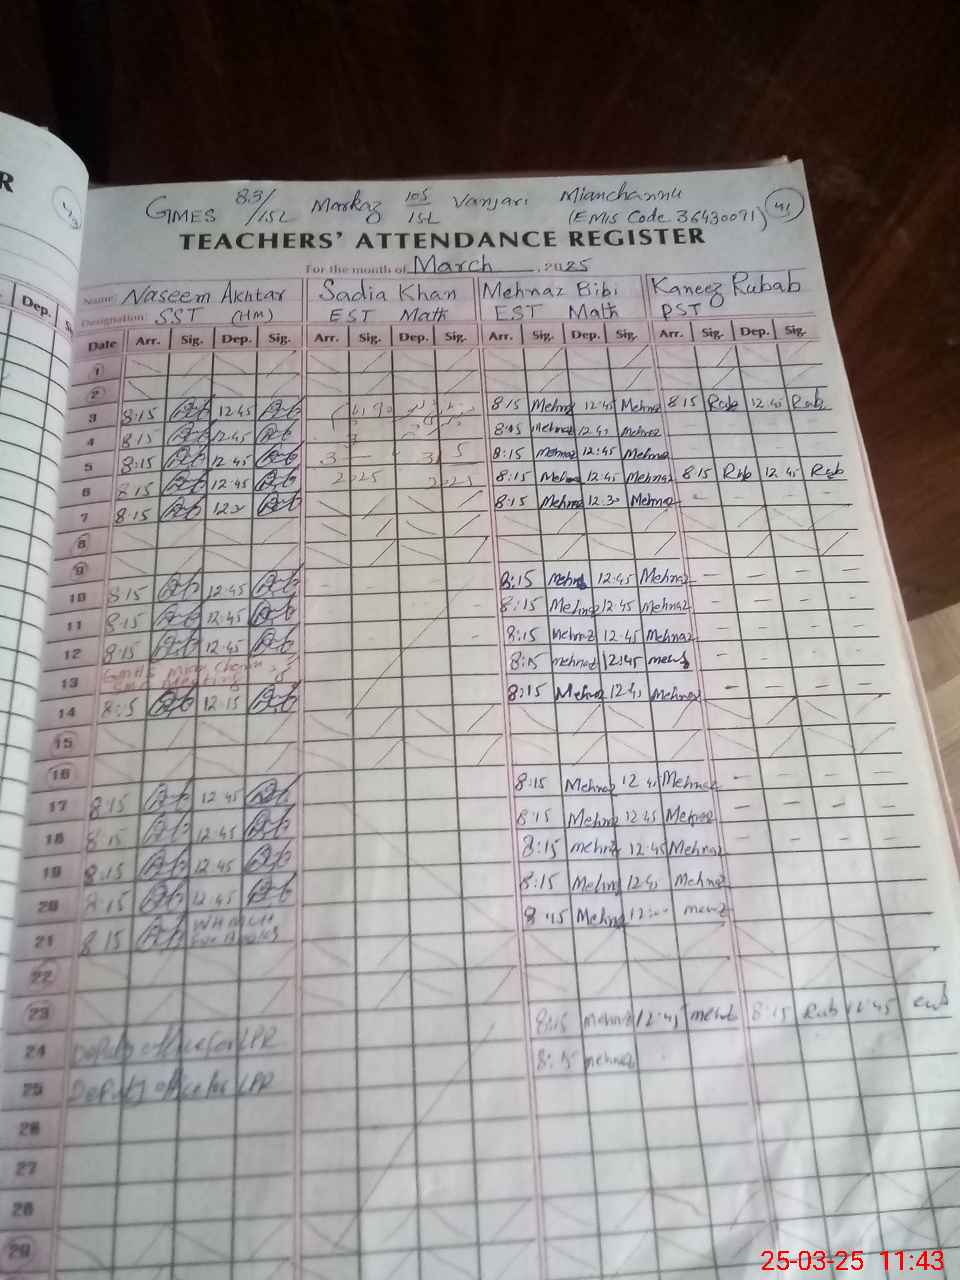 R
GMES 83/15L Markaz 105/15L Vanjari Mianchannu
(EMIS Code 36430071) 41
TEACHERS' ATTENDANCE REGISTER
For the month of March, 2025
Name: Naseem Akhtar Sadia Khan Mehnaz Bibi Kaneez Rubab
Designation: SST (HM) EST Math EST Math PST
Dep.
Date Arr. Sig. Dep. Sig. Arr. Sig. Dep. Sig. Arr. Sig. Dep. Sig. Arr. Sig. Dep. Sig.
1
2
3 8:15 12:45 8:15 Mehnaz 12:45 Mehnaz 8:15 Rub 12:45 Rub
4 8:15 12:45 8:15 Mehnaz 12:45 Mehnaz
5 8:15 12:45 3 3 5 8:15 Mehnaz 12:45 Mehnaz
6 8:15 12:45 2025 2025 8:15 Mehnaz 12:45 Mehnaz 8:15 Rub 12:45 Rub
7 8:15 8:15 Mehnaz 12:30 Mehnaz
8
9
10 8:15 12:45 8:15 Mehnaz 12:45 Mehnaz
11 8:15 12:45 8:15 Mehnaz 12:45 Mehnaz
12 8:15 12:45 8:15 Mehnaz 12:45 Mehnaz
13 Meeting 8:15 mehnaz 12:45
14 8:15 12:15 8:15 Mehnaz 12:45 Mehnaz
15
16
17 8:15 12:45 8:15 Mehnaz 12:45 Mehnaz
18 8:15 12:45 8:15 Mehnaz 12:45 Mehnaz
19 8:15 12:45 8:15 mehnaz 12:45 Mehnaz
20 8:15 12:45 8:15 Mehnaz 12:45 Mehnaz
21 8:15 8:15 Mehnaz
22
23
24 Deputy office for LPR 8:15 Mehnaz 12:45 8:15 Rub 12:45 Rub
25 Deputy office for LPR 8:15 mehnaz
26
27
28
29
25-03-25 11:43